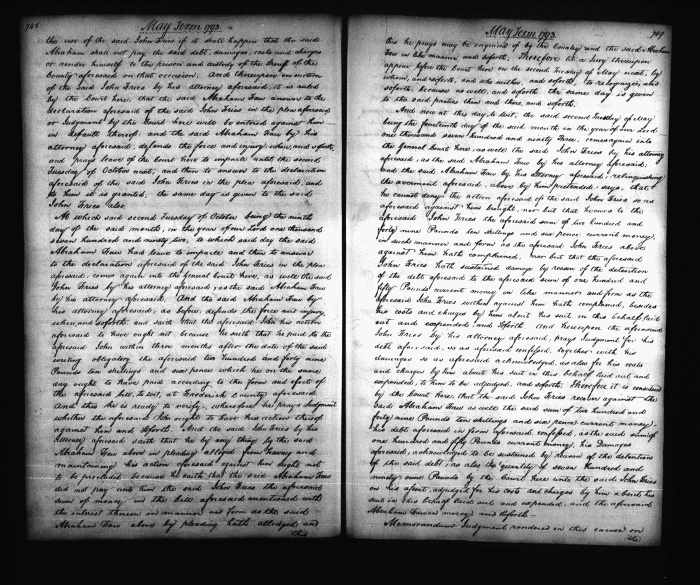 May Term 1793.
the use of the said John Fries if it shall happen that the said
Abraham shall not pay the said debt, damages, costs and charges
or render himself to the prison and custody of the Sheriff of the
County aforesaid on that occasion. And thereupon on motion
of the said John Fries by his attorney aforesaid, it is ruled
by the Court here, that the said Abraham Faw answer to the
declaration aforesaid of the said John Fries in the plea aforesaid
or Judgment by the Court here will be entered against him
in default thereof, and the said Abraham Faw by his
attorney aforesaid, defends the force and injury when and soforth
and prays leave of the Court here to imparle until the second
Tuesday of October next, and then to answer to the declaration
aforesaid of the said John Fries in the plea aforesaid, and
to him it is granted, the same day is given to the said
John Fries also.
At which said second Tuesday of October being the ninth
day of the said month, in the year of our Lord one thousand
seven hundred and ninety two, to which said day the said
Abraham Faw had leave to imparle and then to answer
to the declaration aforesaid of the said John Fries in the plea
aforesaid, comes again into the General Court here, as well the said
John Fries by his attorney aforesaid, as the said Abraham Faw
by his attorney aforesaid. And the said Abraham Faw by
his attorney aforesaid, as before, defends the force and injury
when and soforth, and saith that the aforesaid John his action
aforesaid to have ought not because he saith that he paid to the
aforesaid John within three months after the date of the said
writing obligatory the aforesaid two hundred and forty nine
Pounds ten shillings and six pence which he on the same
day ought to have paid according to the form and effect of
the aforesaid bill, to wit, at Frederick County aforesaid
And this he is ready to verify; wherefore he prays Judgment
whether the aforesaid John ought to have his action thereof
against him and soforth. And the said John Fries by his
Attorney aforesaid saith that he by any thing by the said
Abraham Faw above in pleading alleged from having and
maintaining his action aforesaid against him ought not
to be precluded because he saith that the said Abraham Faw
did not pay unto him the said John Fries the aforesaid
sum of money in the bill aforesaid mentioned with
the interest thereon in manner and form as the said
Abraham Faw above by pleading hath alledged and
this
May Term 1793.
789
this he prays may be enquired of by the Country and the said Abraham
Faw in like manner and soforth; Therefore let a Jury thereupon
appear before the Court here on the second Tuesday of May next, by
whom, and soforth, and who neither, and soforth to recognize, and
soforth, because as well, and soforth the same day is given
to the said parties then and there, and soforth.
And now at this day, to wit, the said second Tuesday of May
being the fourteenth day of the said month in the year of our Lord
one thousand seven hundred and ninety three, comes again into
the General Court here, as well the said John Fries by his attorney
aforesaid, as the said Abraham Faw by his attorney aforesaid,
And the said Abraham Faw by his attorney aforesaid, relinquishing
the averment aforesaid, above by him pretended, says, that
he cannot deny the action aforesaid of the said John Fries so as
aforesaid against him brought, nor but that he owes to the
aforesaid John Fries the aforesaid sum of two hundred and
forty nine Pounds ten shillings and six pence current money,
in such manner and form as the aforesaid John Fries above
against him hath complained, nor but that the aforesaid
John Fries hath sustained damage by reason of the detention
of the debt aforesaid to the aforesaid sum of one hundred and
fifty Pounds current money in like manner and form as the
aforesaid John Fries within against him hath complained, besides
his costs and charges by him about his suit in this behalf laid
out and expended, and soforth. And hereupon the aforesaid
John Fries by his attorney aforesaid, prays Judgment for his
debt aforesaid, so as aforesaid confessed, together with his
damages so as aforesaid acknowledged, as also for his costs
and charges by him about his suit in this behalf laid out and
expended, to him to be adjudged, and soforth; Therefore it is considered
by the Court here, that the said John Fries recover against the
said Abraham Faw as well the said sum of two hundred and
forty nine Pounds ten shillings and six pence current money,
his debt aforesaid in form aforesaid confessed, as the said sum of
one hundred and fifty Pounds current money, his Damages
aforesaid, acknowledged to be sustained by reason of the detention
of the said debt, as also the quantity of seven hundred and
ninety nine Pounds by the Court here unto the said John Fries
on his assent, adjudged for his costs and charges by him about his
suit in this behalf laid out and expended, and the aforesaid
Abraham in mercy and soforth.
Memorandum Judgment rendered in this cause on
the